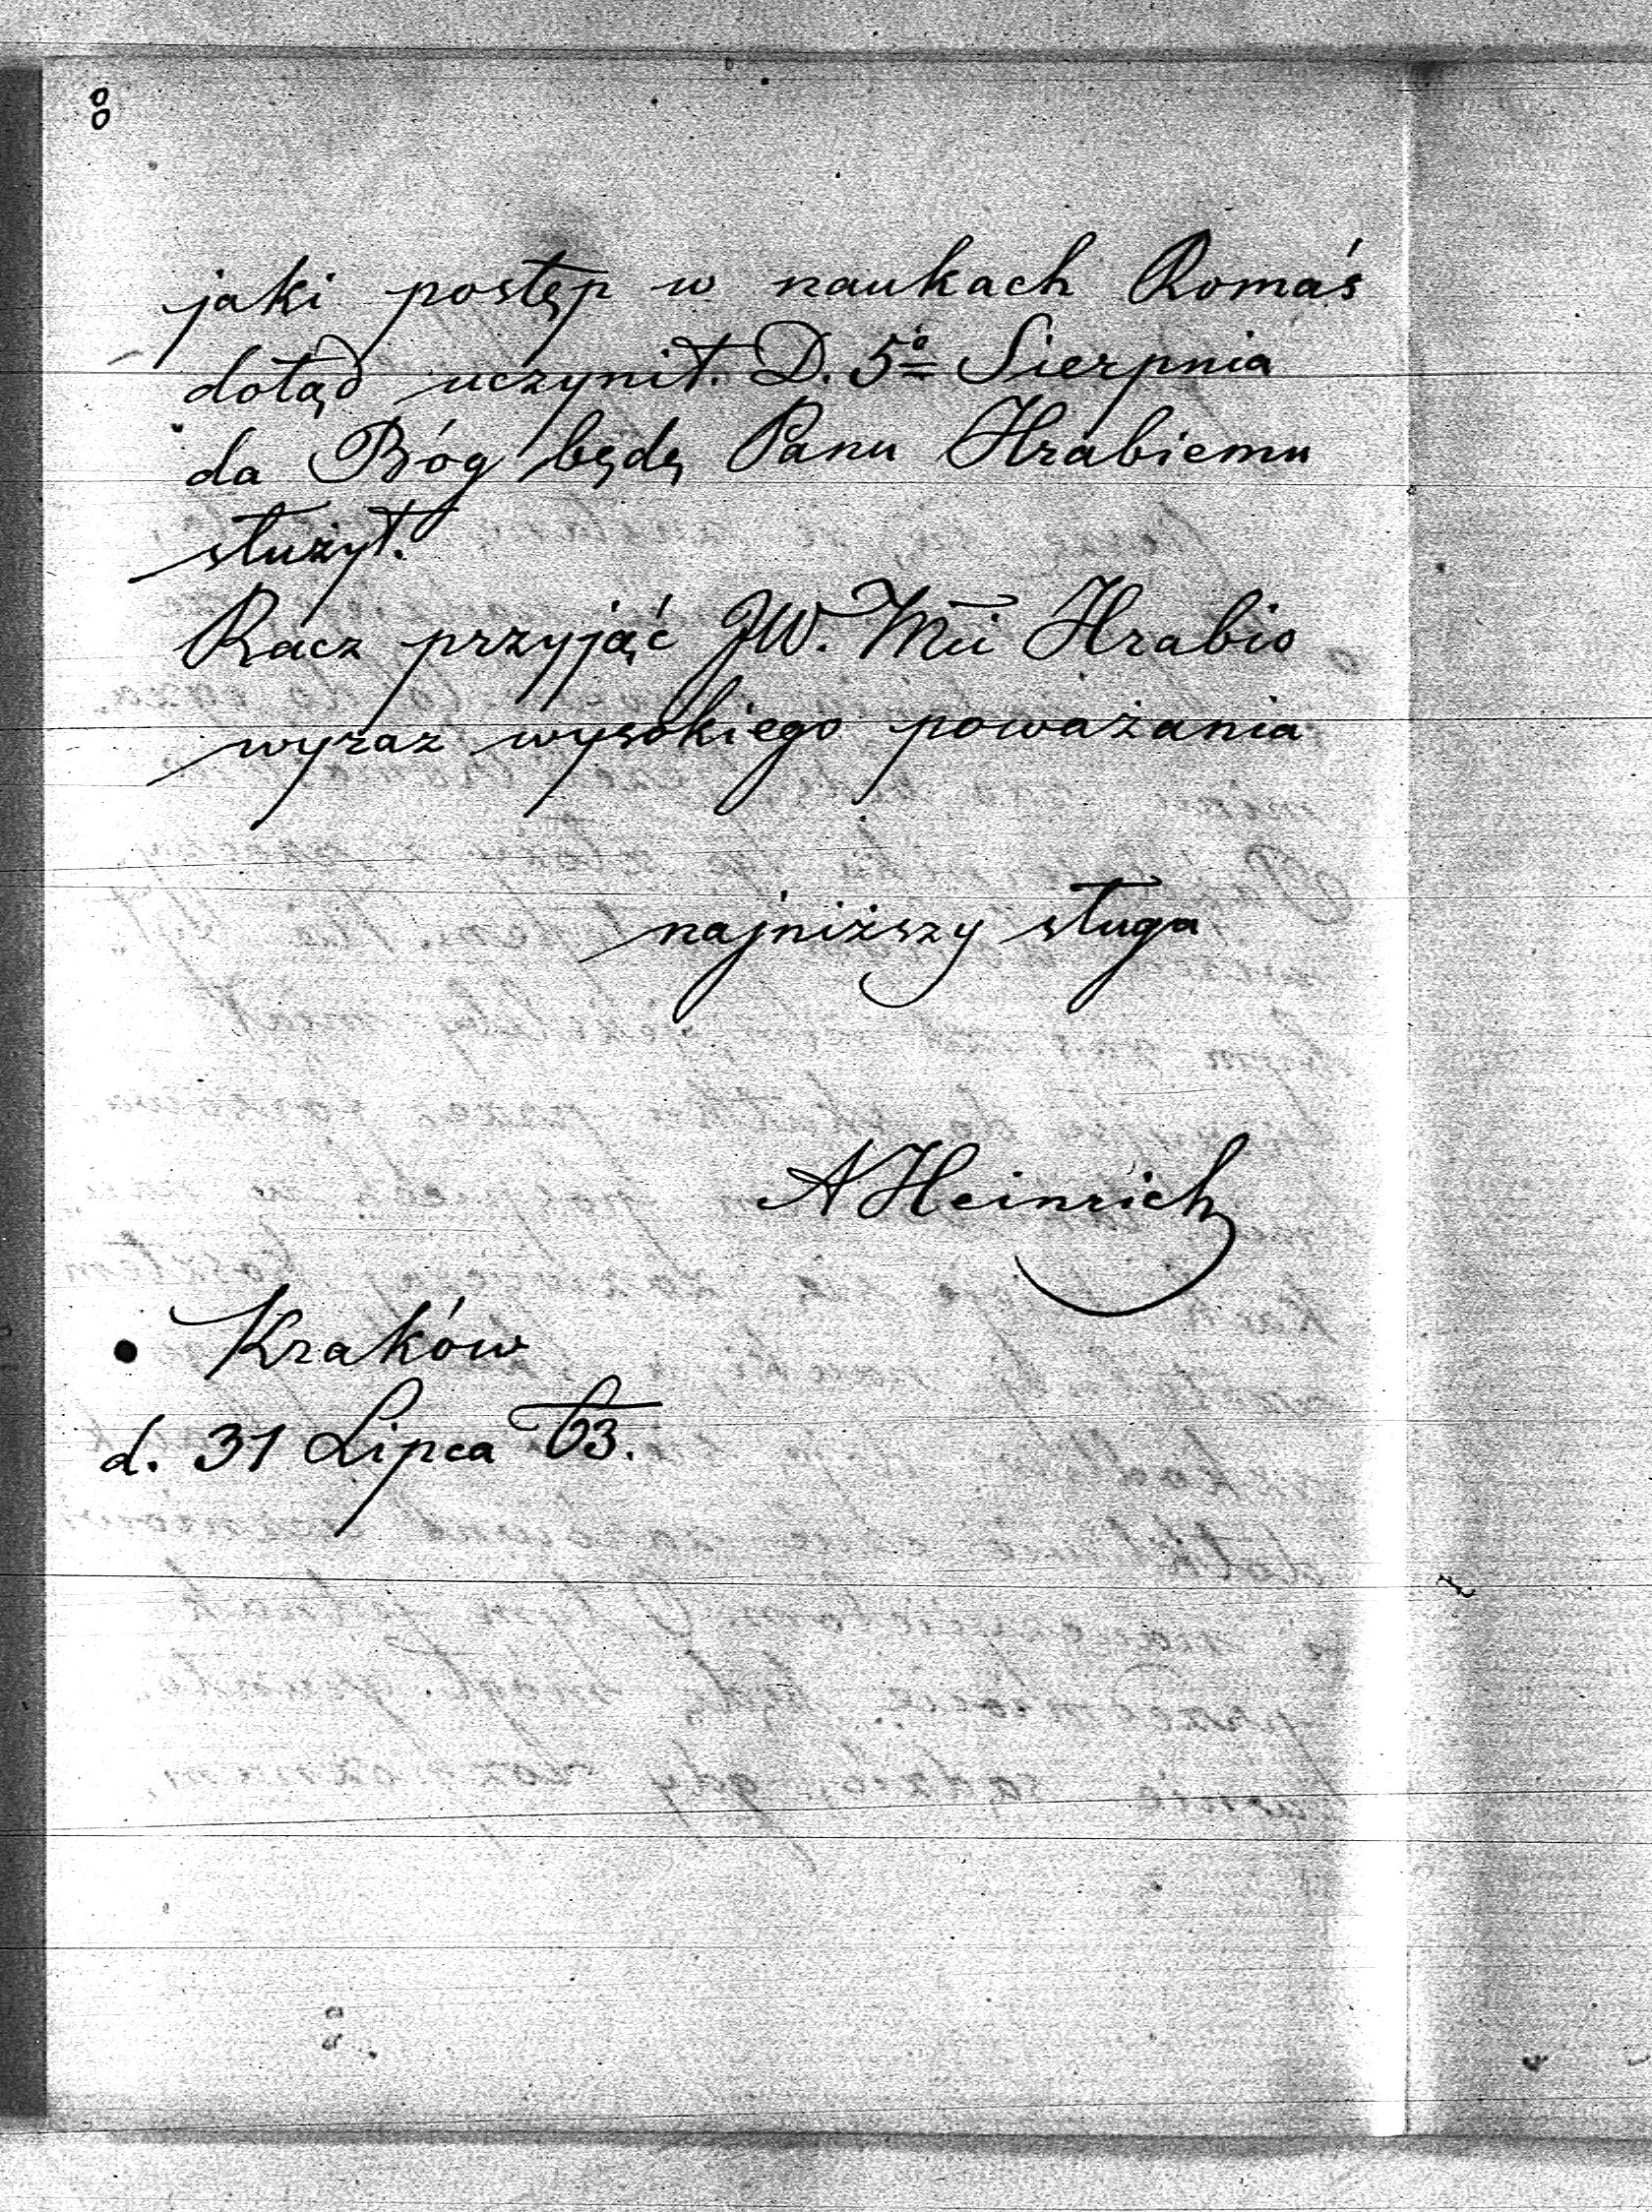 8
jaki postęp w naukach Romaś
dotąd uczynił. D. 5º Sierpnia
da Bóg będę Panu Hrabiemu
służył.
Racz przyjąć JW. Hrabio
wyraz wysokiego poważania
najniższy sługa
A Heinrich
Kraków
d. 31 Lipca 63.